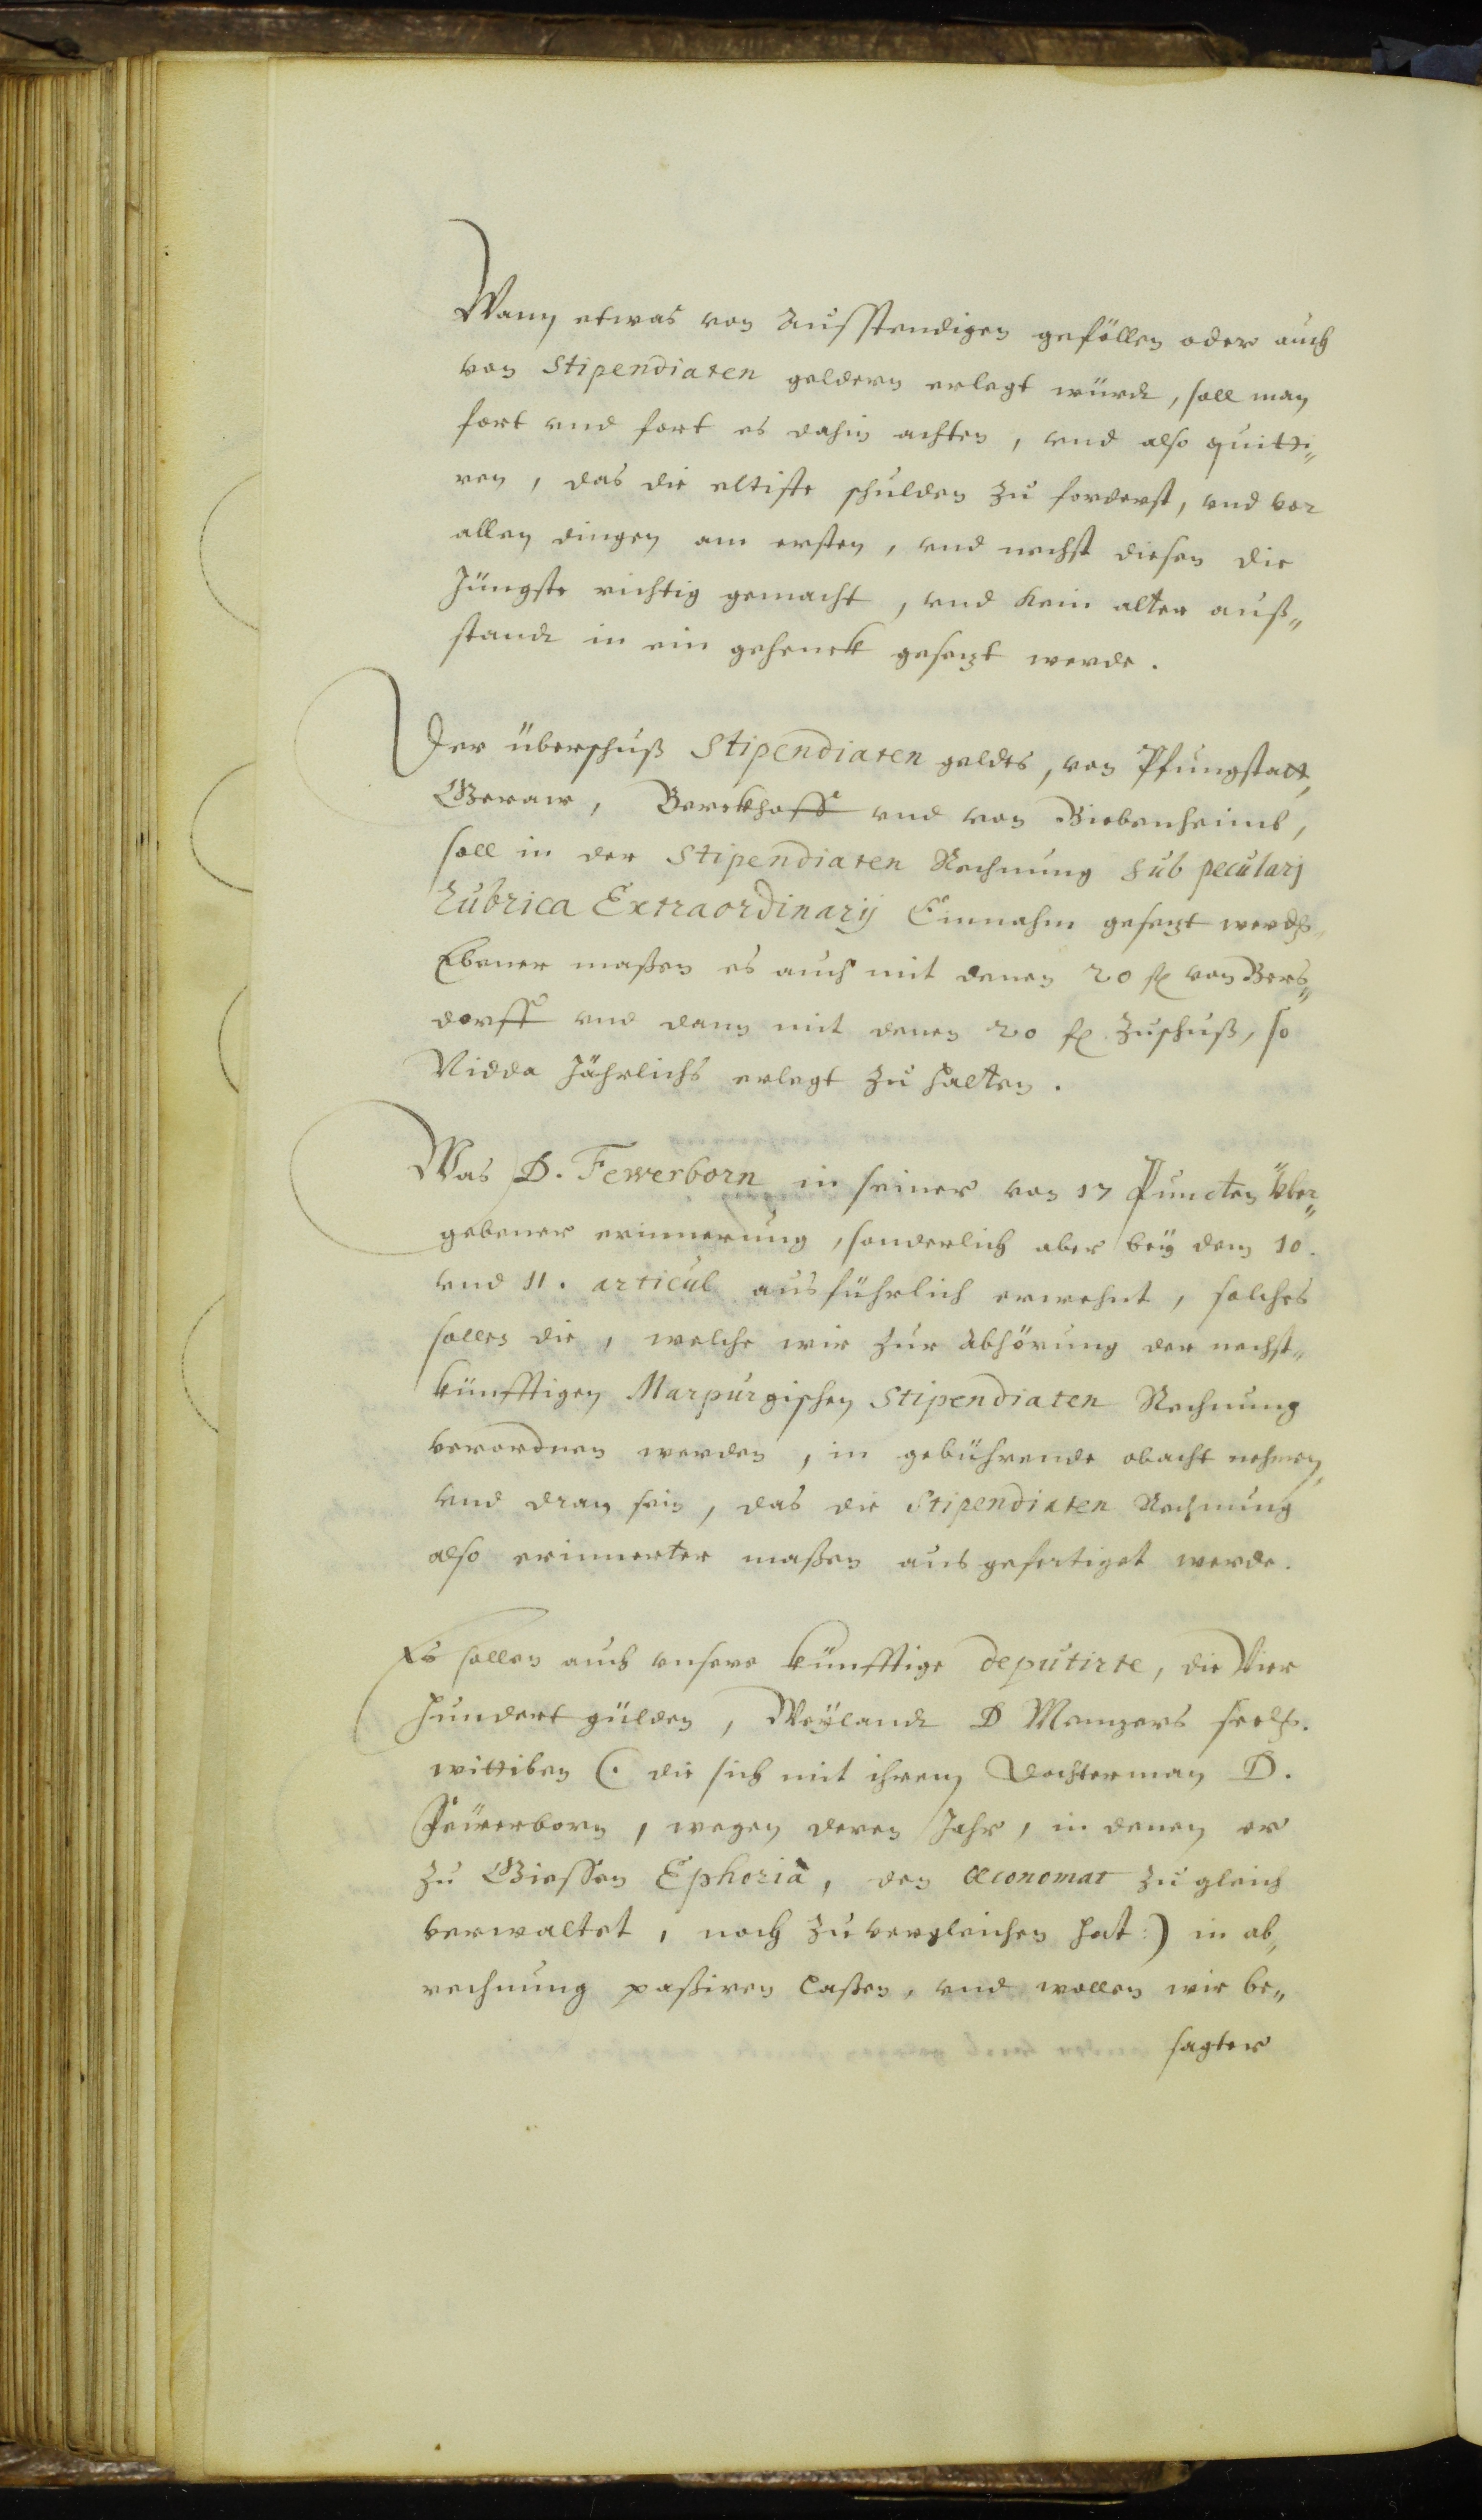 Wann etwas von Ausstendigen gefällen oder auch
von Stipendiaten geldern erlegt würdt, soll man
fort vnd fort es dahin achten, vnd also quitti„
ren, das die eltiste schulden zu forderst, vnd vor
allen dingen am ersten, vnd nechst diesen die
Jüngste richtig gemacht, vnd kein alter auß„
standt in ein gehenck gesezt werde.
Der überschuß Stipendiaten geldts, von Pfungstatt,
Geraw, Berckhoff vnd von Biebenheimb,
soll in der Stipendiaten Rechnung sub peculari
Rubrica Extraordinarij Einnahm gesezt werden
Ebener maßen es auch mit denen 20 fl von Bers„
dorff vnd dann mit denen 20 fl zuschuß, so
Nidda Jährlichs erlegt zu halten.
Was D. Fewerborn in seiner von 17 Puncten über„
gebener erinnerung, sonderlich aber bey dem 10.
vnd 11. articul ausführlich erwehnt, solches
sollen die, welche wir zur abhörung der nechst„
künfftigen Marpurgischen Stipendiaten Rechnung
verordnen werden, in gebührende obacht nehmen,
vnd dran sein, das die Stipendiaten Rechnung
also erinnerter maßen ausgefertiget werde.
Es sollen auch vnsere künfftige deputirte, die Vier
hundert gülden, Weylandt D Menzers seel.
wittiben (. die sich mit ihrem Dochterman D.
Feürerborn, wegen deren Jahr, in denen er
zu Giessen Ephoria, den Œconomat zugleich
verwaltet, noch zuvergleichen hat:) in ab„
rechnung paßiren laßen, vnd wollen wir be„
sagter